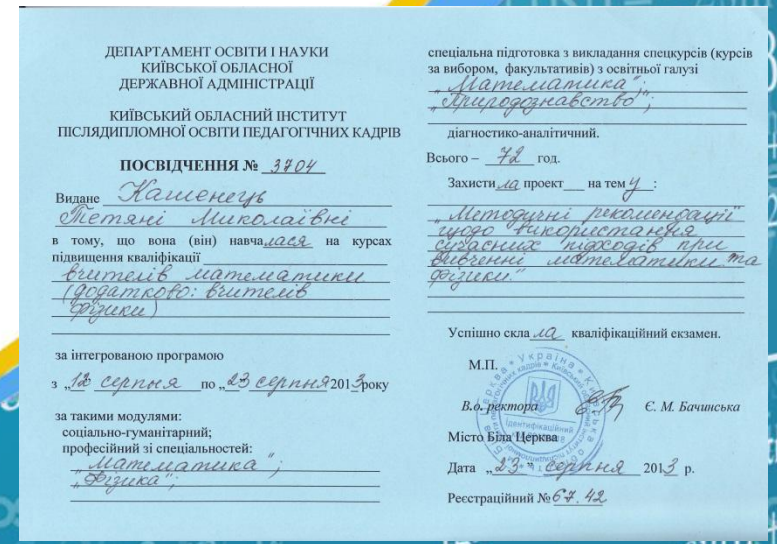 ДЕПАРТАМЕНТ ОСВІТИ І НАУКИ
КИЇВСЬКОЇ ОБЛАСНОЇ
ДЕРЖАВНОЇ АДМІНІСТРАЦІЇ
КИЇВСЬКИЙ ОБЛАСНИЙ ІНСТИТУТ
ПІСЛЯДИПЛОМНОЇ ОСВІТИ ПЕДАГОГІЧНИХ КАДРІВ
ПОСВІДЧЕННЯ № 3704
Видане Кашенець
Тетяні Миколаївні
в тому, що вона (він) навчалася на курсах
підвищення кваліфікації
вчителів математики
(додатково: вчителів
фізики)
за інтегрованою програмою
з „12 серпня по „23 серпня 2013 року
за такими модулями:
соціально-гуманітарний;
професійний зі спеціальностей:
„Математика";
„Фізика";
спеціальна підготовка з викладання спецкурсів (курсів
за вибором, факультативів) з освітньої галузі
„Математика";
„Природознавство";
діагностико-аналітичний.
Всього – 72 год.
Захистила проект на тему :
„Методичні рекомендації
щодо використання
сучасних підходів при
вивченні математики та
фізики."
Успішно склала кваліфікаційний екзамен.
М.П.
В.о. ректора Є. М. Бачинська
Місто Біла Церква
Дата „23" серпня 2013 р.
Реєстраційний № 67.42